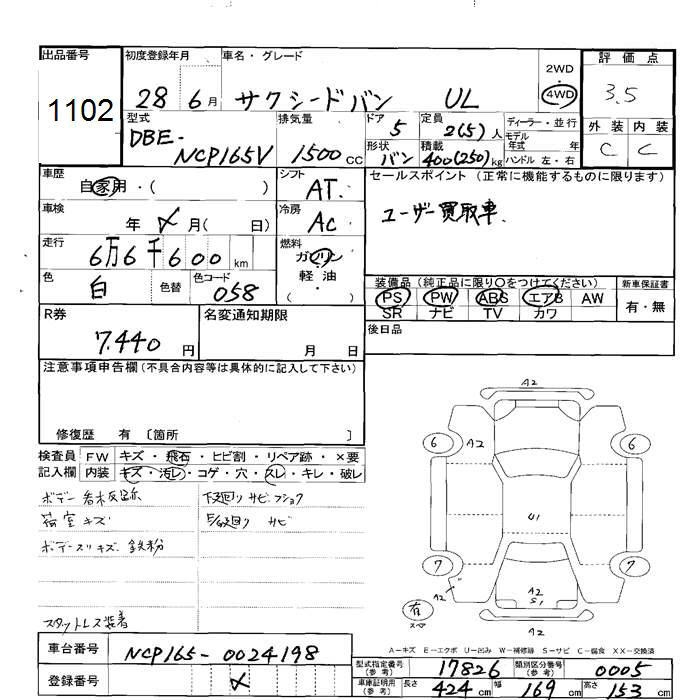 出品番号
1102
初度登録年月
28 6月
車名・グレード
サクシードバン UL
2WD
・
4WD
評価点
3.5
外装 内装
C C
型式
DBE-
NCP165V
排気量
1500cc
ドア 5
形状 バン
定員 2(5)人
積載 400(250)kg
ディーラー・並行
モデル
年式 年
ハンドル 左・右
車歴
自家用・( )
車検
年 月( 日)
走行
6万6千600km
色
白
色替
色コード
058
シフト
AT
冷房
AC
燃料
ガソリン
・
軽油
( )
セールスポイント (正常に機能するものに限ります)
ユーザー買取車.
装備品(純正品に限り○をつけてください)
PS PW ABS エアB AW
SR ナビ TV カワ
新車保証書
有・無
後日品
R券
7.440円
名変通知期限
月 日
注意事項申告欄(不具合内容等は具体的に記入して下さい)
修復歴 有 〔箇所 〕
検査員
記入欄
FW キズ・飛石・ヒビ割・リペア跡・×要
内装 キズ・汚レ・コゲ・穴・スレ・キレ・破レ
荷室キズ
ボデースリキズ 鉄粉
スタットレス装着
下廻り サビ
サビ
A2
6 A2 6
U1
7 7
A2
S1
A2
有
スペア
A2
A-キズ E-エクボ U-凹み W-補修跡 S-サビ C-腐食 XX-交換済
車台番号
NCP165-0024198
登録番号
型式指定番号
(参考)
17826
類別区分番号
(参考)
0005
車庫証明用
(参考)
長さ 424cm 幅 169cm 高さ 153cm